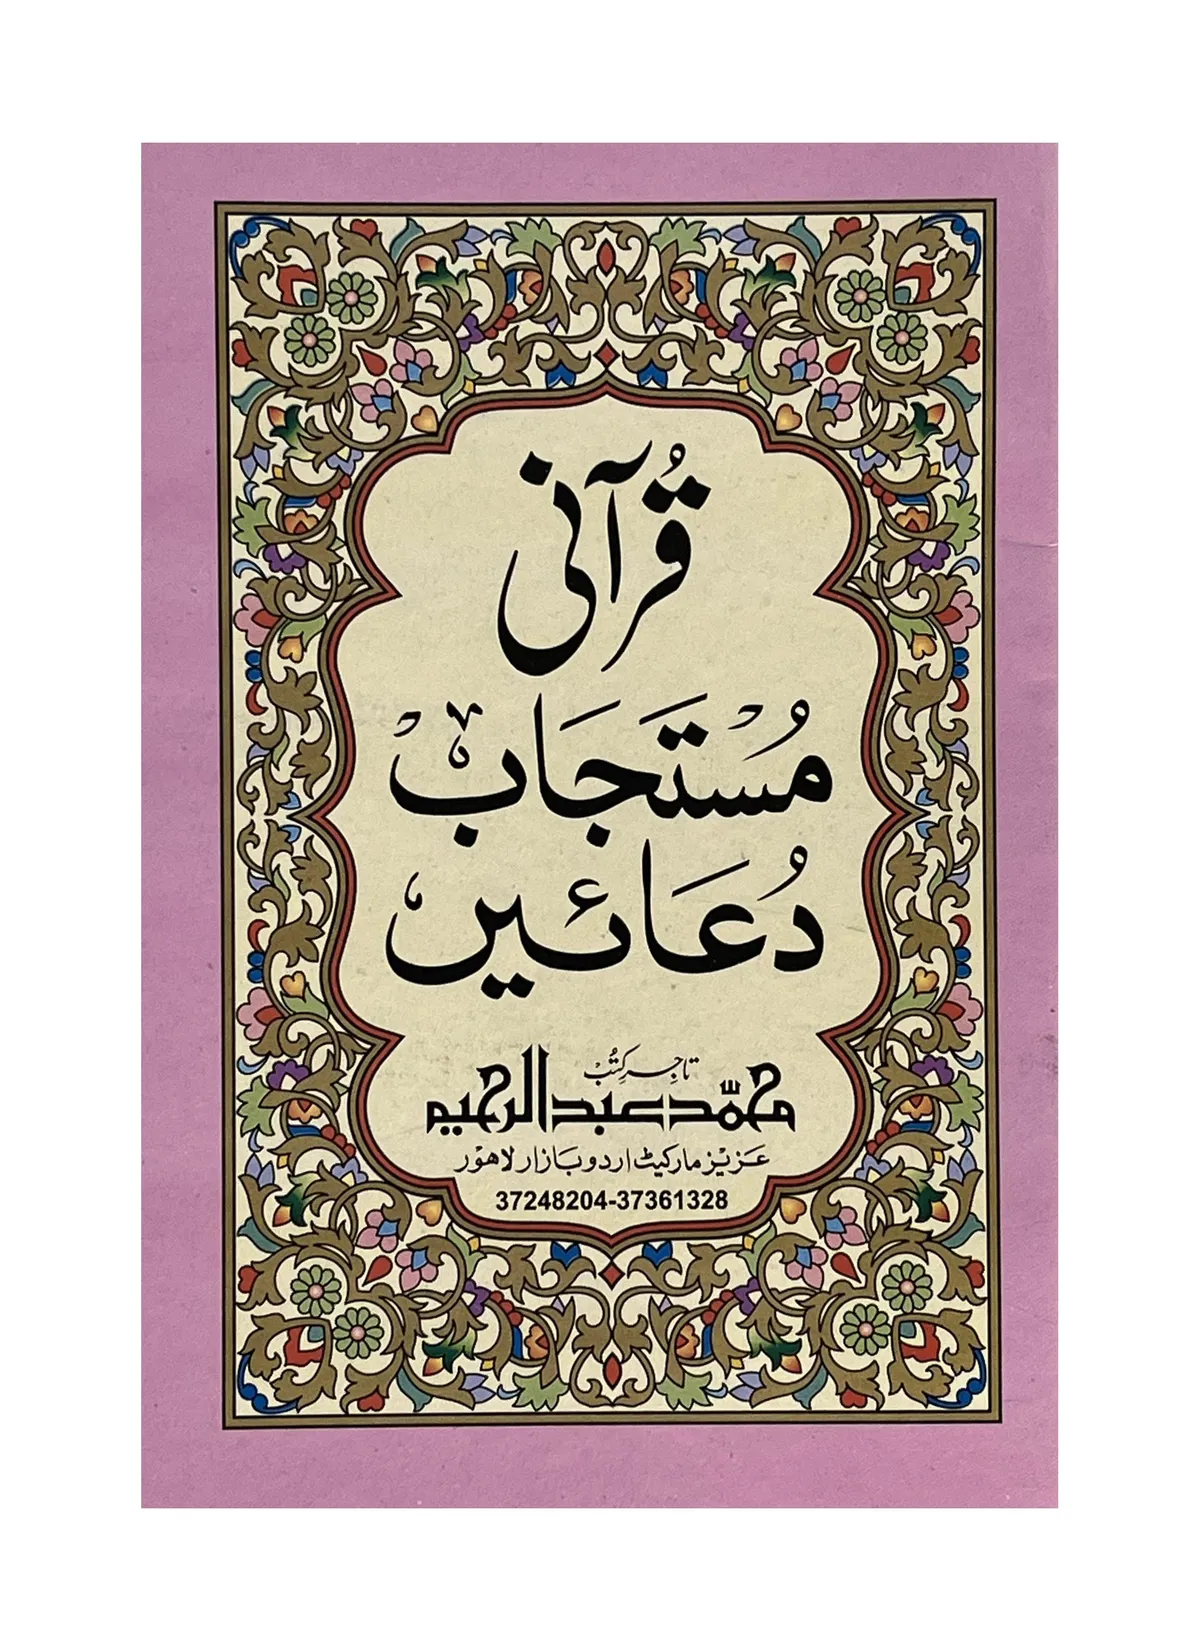 قُرآنی
مُستَجَاب
دُعَائیں
تاجر کتب
محمّد عبدالرحیم
عزیز مارکیٹ اردو بازار لاهور
37248204-37361328